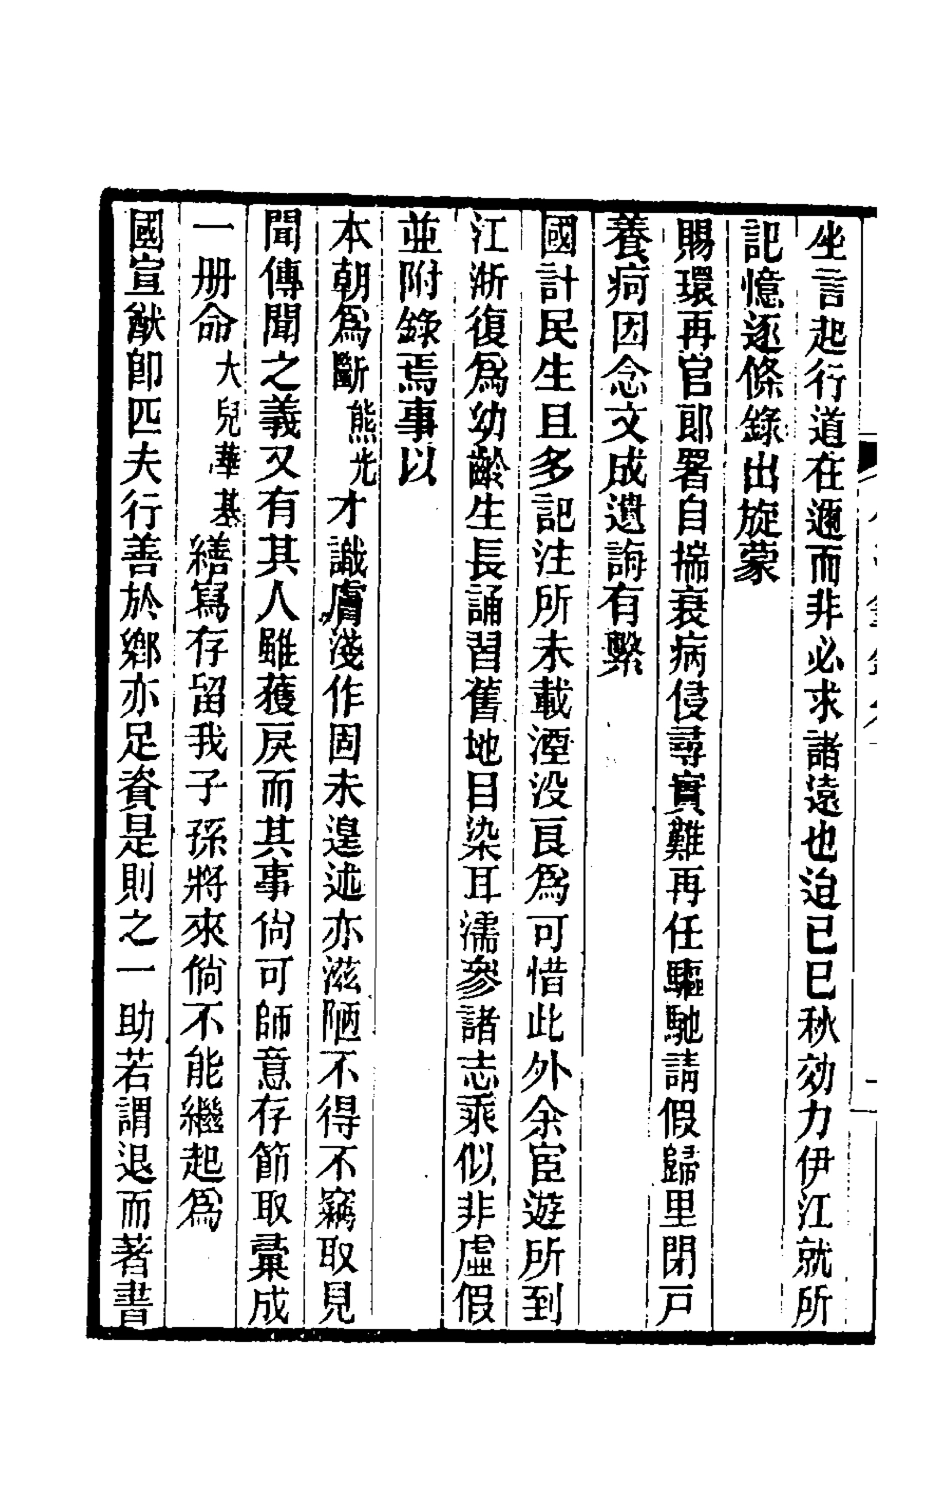 坐言起行道在邇而非必求諸遠也迨己巳秋効力伊江就所
記憶逐條錄出旋蒙
賜環再官郎署自揣衰病侵尋實難再任驅馳請假歸里閉戸
養疴因念文成遺誨有繫
國計民生且多記注所未載湮没良爲可惜此外余宦遊所到
江浙復爲幼齡生長誦習舊地目染耳濡參諸志乘似非虛假
並附錄焉事以
本朝爲斷熊光才識膚淺作固未遑述亦滋陋不得不竊取見
聞傳聞之義又有其人雖獲戾而其事尙可師意存節取彙成
一册命大兒華基繕寫存留我子孫將來倘不能繼起爲
國宣猷卽匹夫行善於鄉亦足資是則之一助若謂退而著書